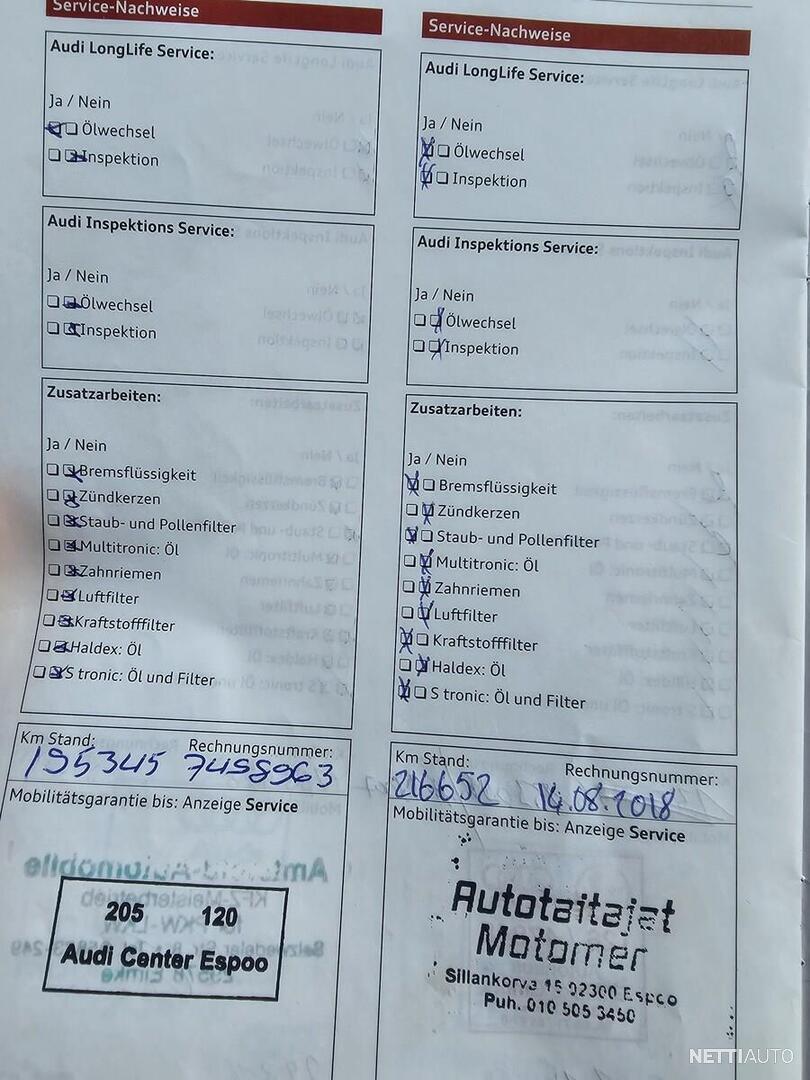 Service-Nachweise
Audi LongLife Service:
Ja / Nein
Ölwechsel
Inspektion
Audi Inspektions Service:
Ja / Nein
Ölwechsel
Inspektion
Zusatzarbeiten:
Ja / Nein
Bremsflüssigkeit
Zündkerzen
Staub- und Pollenfilter
Multitronic: Öl
Zahnriemen
Luftfilter
Kraftstofffilter
Haldex: Öl
S tronic: Öl und Filter
Km Stand: Rechnungsnummer:
195345 7498963
Mobilitätsgarantie bis: Anzeige Service
205 120
Audi Center Espoo
Service-Nachweise
Audi LongLife Service:
Ja / Nein
Ölwechsel
Inspektion
Audi Inspektions Service:
Ja / Nein
Ölwechsel
Inspektion
Zusatzarbeiten:
Ja / Nein
Bremsflüssigkeit
Zündkerzen
Staub- und Pollenfilter
Multitronic: Öl
Zahnriemen
Luftfilter
Kraftstofffilter
Haldex: Öl
S tronic: Öl und Filter
Km Stand: Rechnungsnummer:
216652 14.08.2018
Mobilitätsgarantie bis: Anzeige Service
Autotaitajat
Motomer
Sillankorva 15 02300 Espoo
Puh. 010 505 3450
NETTIAUTO